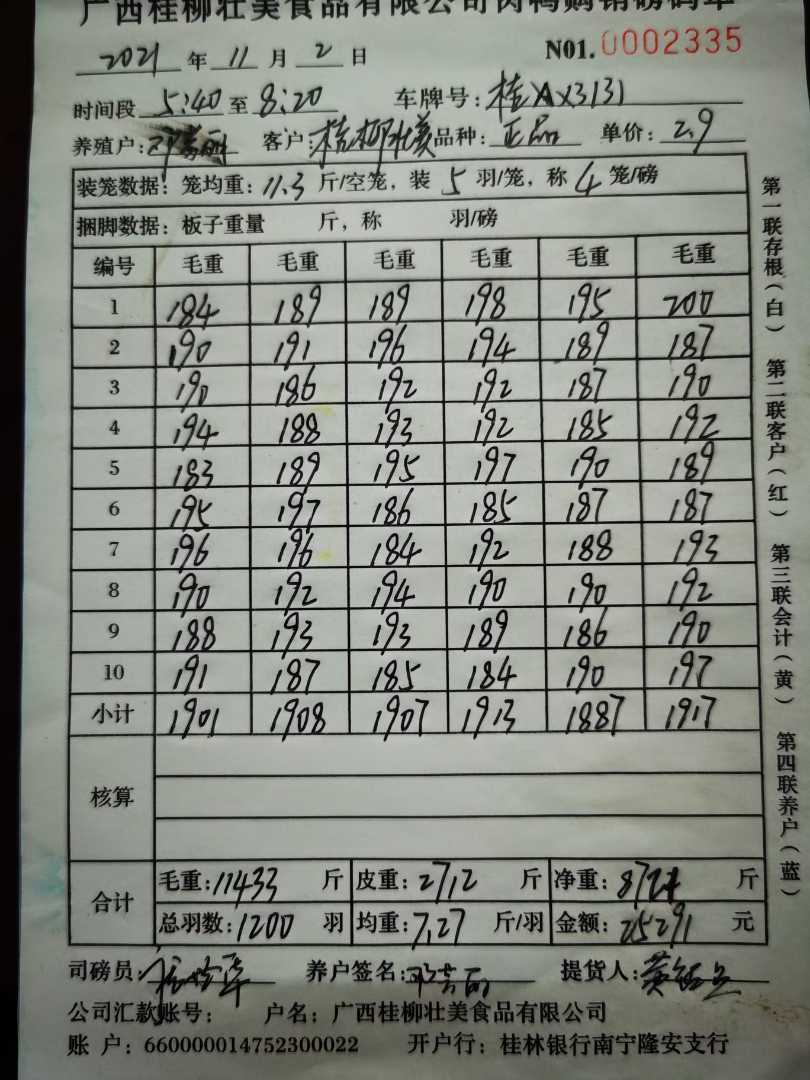 广西桂柳壮美食品有限公司肉鸭购销磅码单
2021 年 11 月 2 日 N01. 0002335
时间段 5:40 至 8:20 车牌号: 桂AX3131
养殖户: 客户: 桂柳壮美 品种: 正品 单价: 2.9
装笼数据: 笼均重: 11.3 斤/空笼, 装 5 羽/笼, 称 4 笼/磅
捆脚数据: 板子重量 斤, 称 羽/磅
编号 毛重 毛重 毛重 毛重 毛重 毛重
1 184 189 189 198 195 200
2 190 191 196 194 189 187
3 190 186 192 192 187 190
4 194 188 193 192 185 192
5 183 189 195 197 190 189
6 195 197 186 185 187 187
7 196 196 184 192 188 193
8 190 192 194 190 190 192
9 188 193 193 189 186 190
10 191 187 185 184 190 197
小计 1901 1908 1907 1913 1887 1917
核算
合计 毛重: 11433 斤 皮重: 2712 斤 净重: 8721 斤
总羽数: 1200 羽 均重: 7.27 斤/羽 金额: 25291 元
司磅员: 养户签名: 提货人:
公司汇款账号: 户名: 广西桂柳壮美食品有限公司
账 户: 660000014752300022 开户行: 桂林银行南宁隆安支行
第一联存根(白) 第二联客户(红) 第三联会计(黄) 第四联养户(蓝)